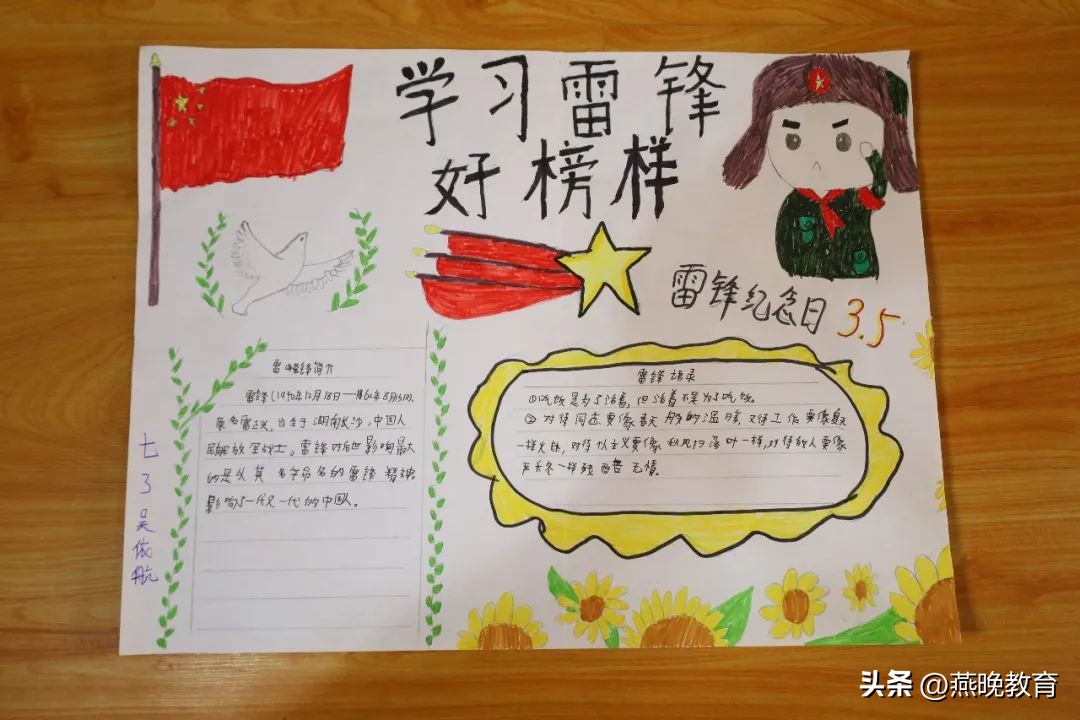 学习雷锋
好榜样
雷锋纪念日 3.5
雷锋简介
雷锋(1940年12月18日—1962年8月15日),
原名雷正兴,出生于湖南长沙,中国人
民解放军战士。雷锋对后世影响最大
的是以其名字命名的雷锋精神
影响了一代又一代的中国人。
雷锋语录
①吃饭是为了活着,但活着不是为了吃饭。
②对待同志要像春天般的温暖,对待工作要像夏天
一样火热,对待个人主义要像秋风扫落叶一样,对待敌人要像
严冬一样残酷无情。
七 3 吴依航
头条 @燕晚教育